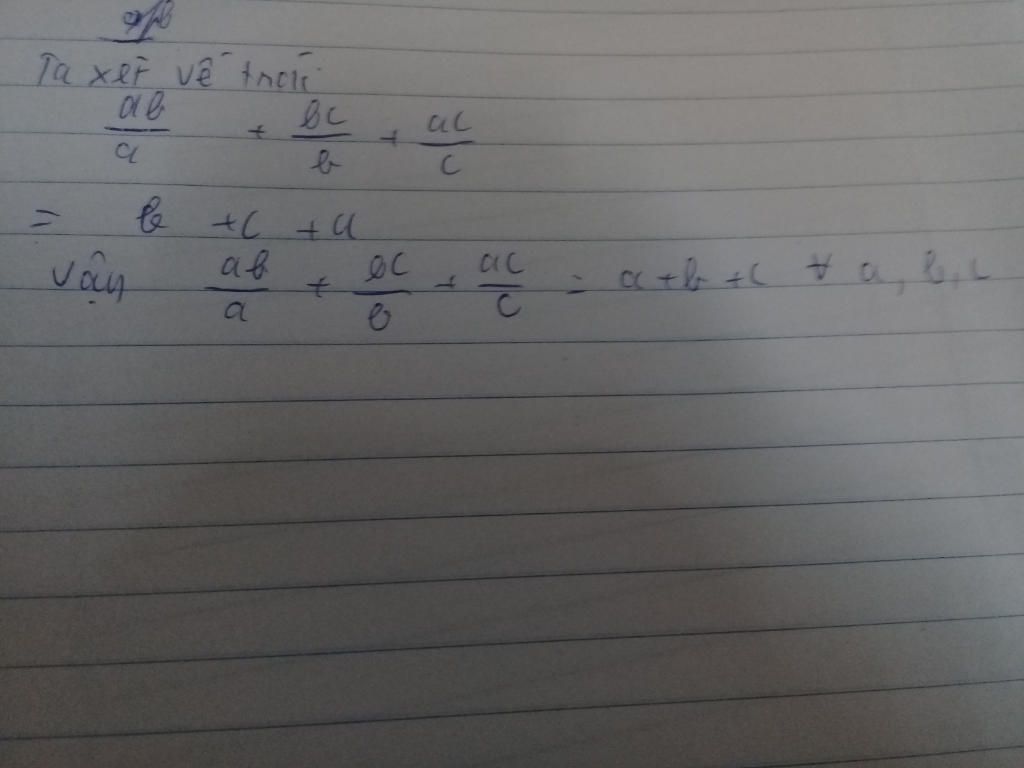 Ta xét vế trái:
ab/a + bc/b + ac/c
= b + c + a
Vậy ab/a + bc/b + ac/c = a + b + c ∀ a, b, c